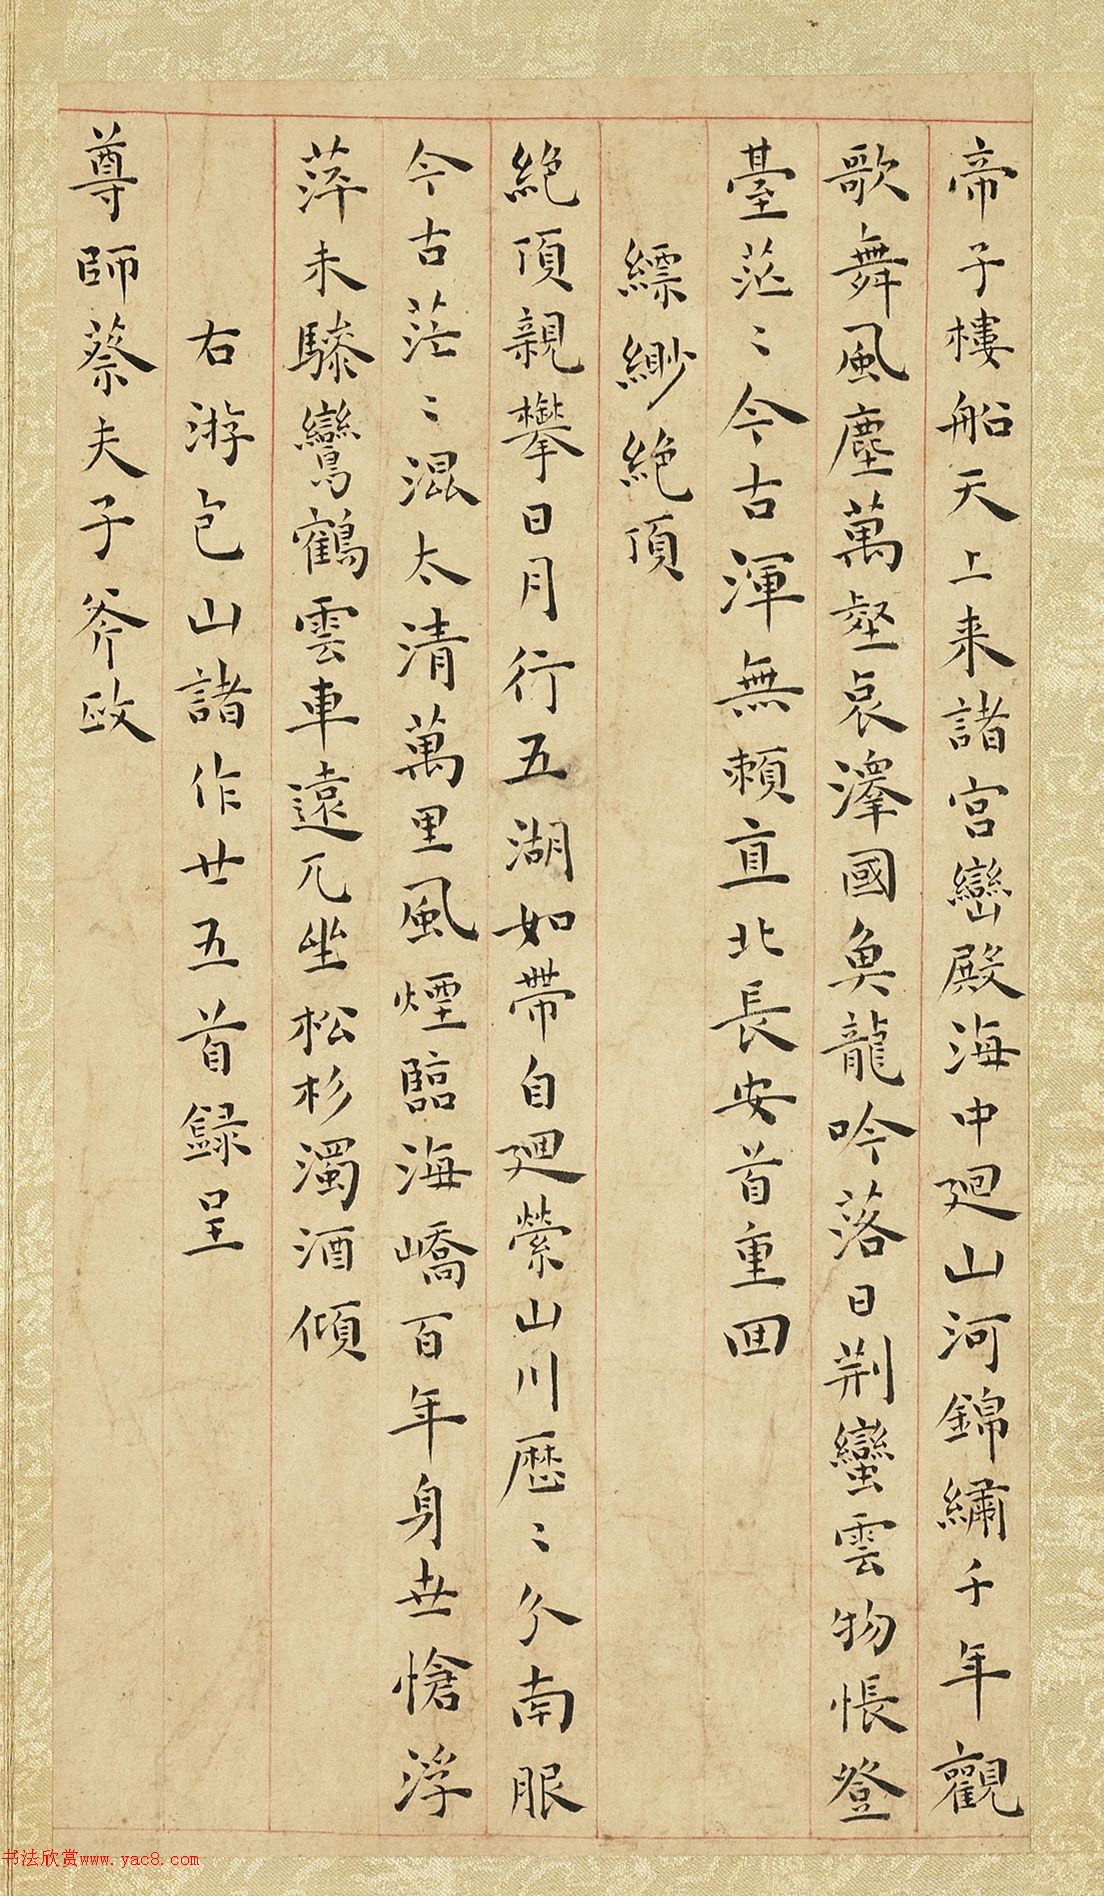 帝子樓船天上来諸宮巒殿海中廻山河錦繡千年觀
歌舞風塵萬壑哀澤國魚龍吟落日荆蠻雲物悵登
臺茫〻今古渾無賴直北長安首重回
縹緲絶頂
絶頂親攀日月行五湖如帶自廻縈山川歷〻分南服
今古茫〻混太清萬里風煙臨海嶠百年身世愴浮
萍未驂鸞鶴雲車遠兀坐松杉濁酒傾
右游包山諸作廿五首録呈
尊師蔡夫子斧政
书法欣赏www.yac8.com